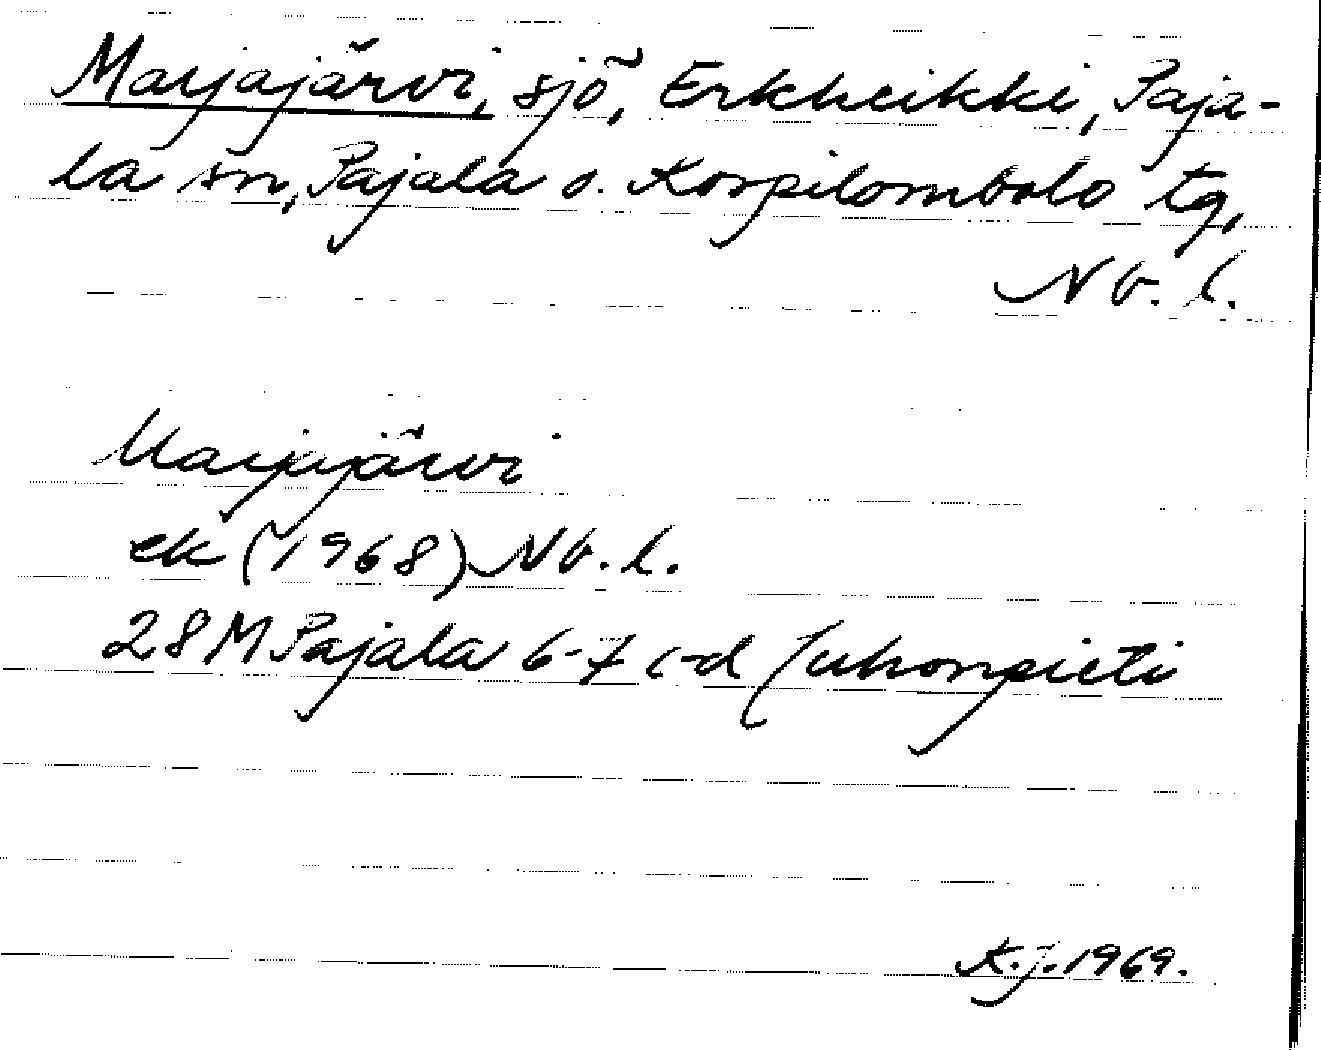 Marjajärvi, sjö, Erkheikki, Paja-
la sn, Pajala o. Korpilombolo tg,
Nb. l.
Marjajärvi
ek (1968) Nb. l.
28 M Pajala 6-7 c-d Juhonpieti
K.J. 1969.